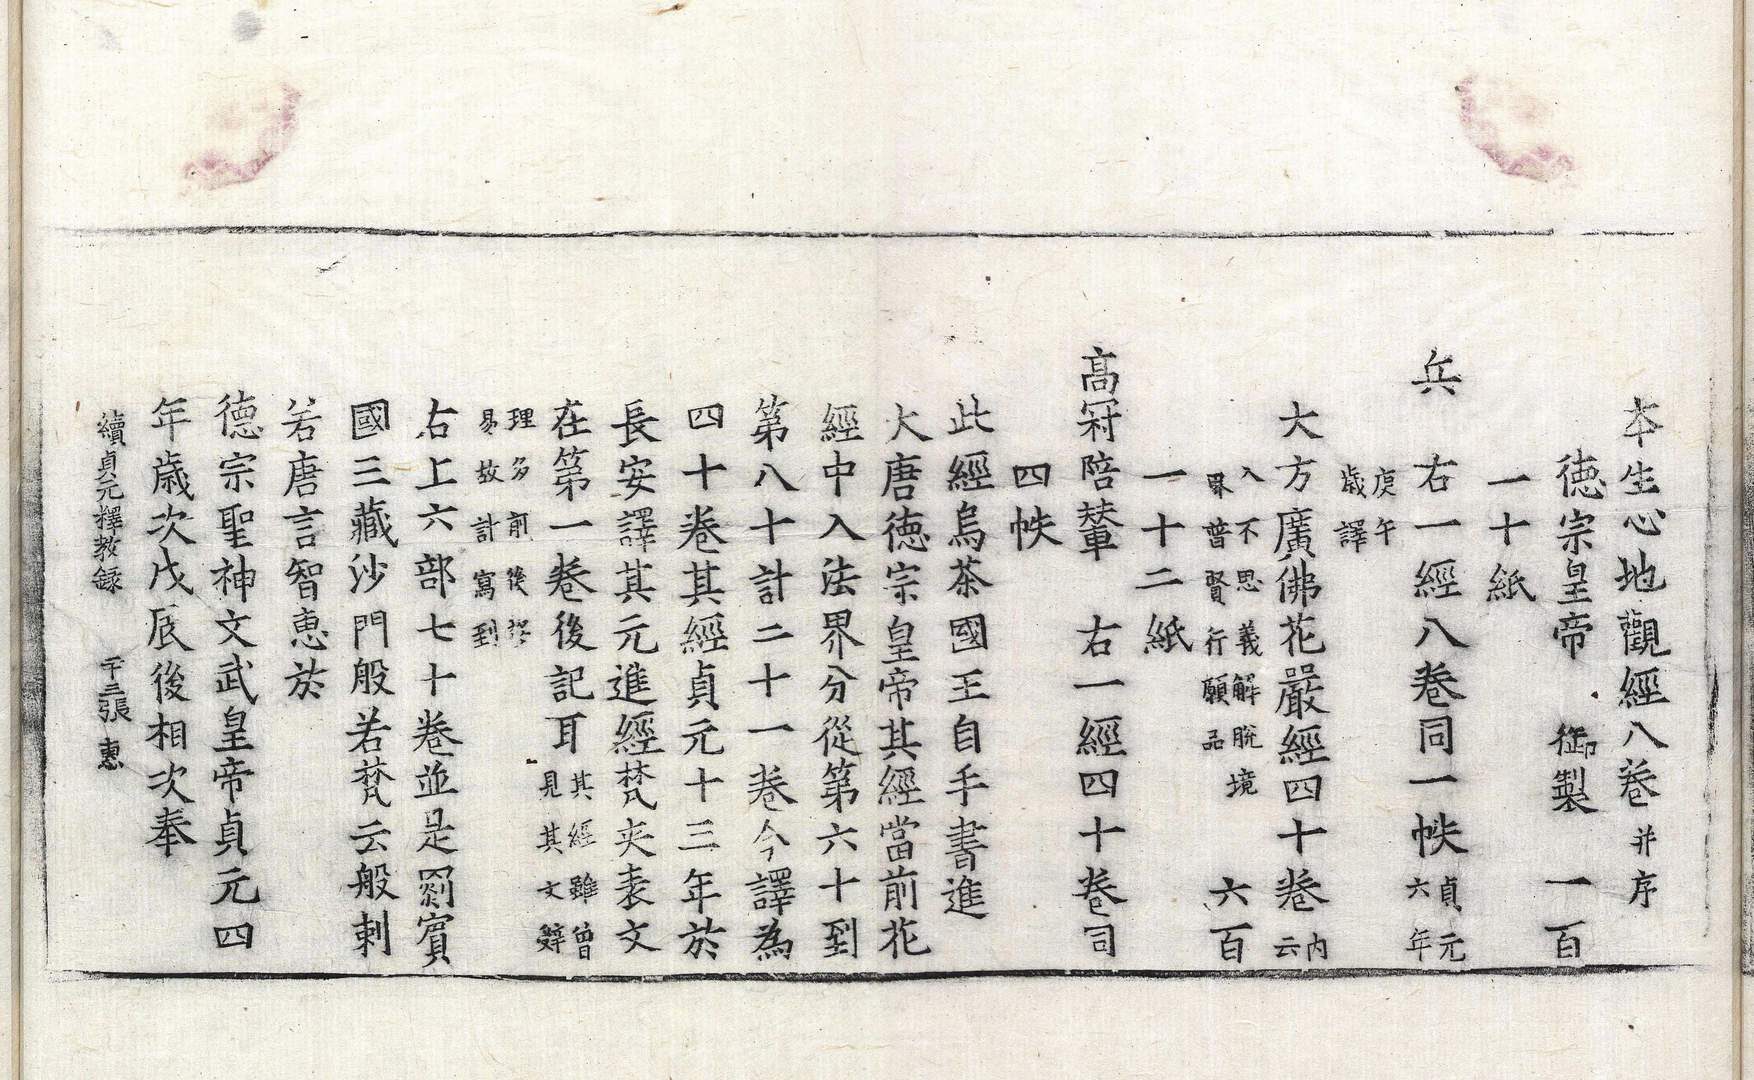 本生心地觀經八卷并序
德宗皇帝 御製 一百
一十紙
兵 右一經八卷同一帙貞元六年
庚午歲譯
大方廣佛花嚴經四十卷内云
入不思義解脫境界普賢行願品 六百
一十二紙
高冠陪輦 右一經四十卷司
四帙
此經烏茶國王自手書進
大唐德宗皇帝其經當前花
經中入法界分從第六十到
第八十計二十一卷今譯為
四十卷其經貞元十三年於
長安譯其元進經梵夾表文
在第一卷後記耳其經雖曾見其文辭
理多前後
易故計寫到
右上六部七十卷並是罽賓
國三藏沙門般若梵云般剌
若唐言智惠於
德宗聖神文武皇帝貞元四
年歲次戊辰後相次奉
續貞元釋教錄 十三張 惠